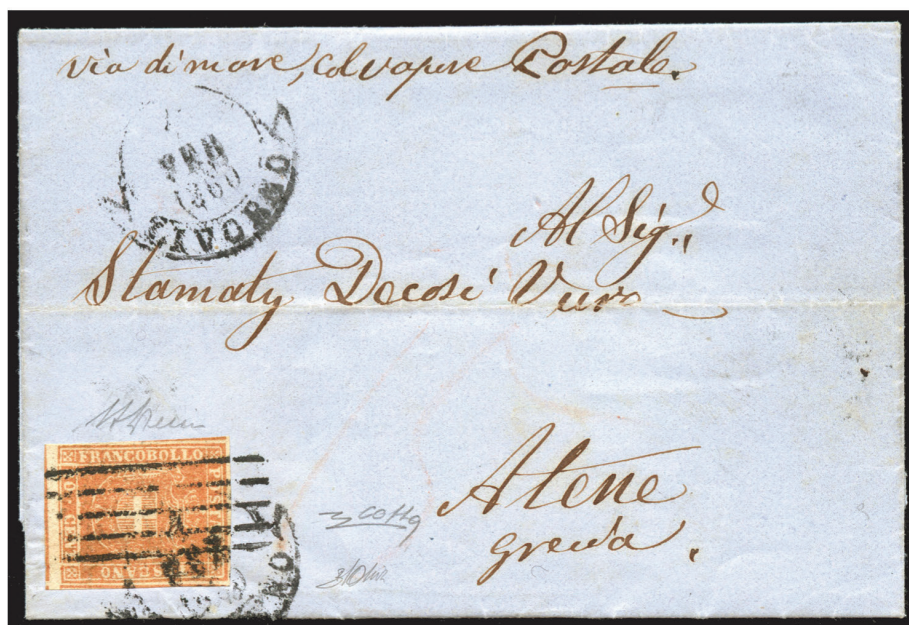 via di mare, col vapore Postale.
FEB
1860
LIVORNO
Al Sig.r
Stamaty Decosi Vuro
FRANCOBOLLO
POSTALE TOSCANO
Atene
grecia.